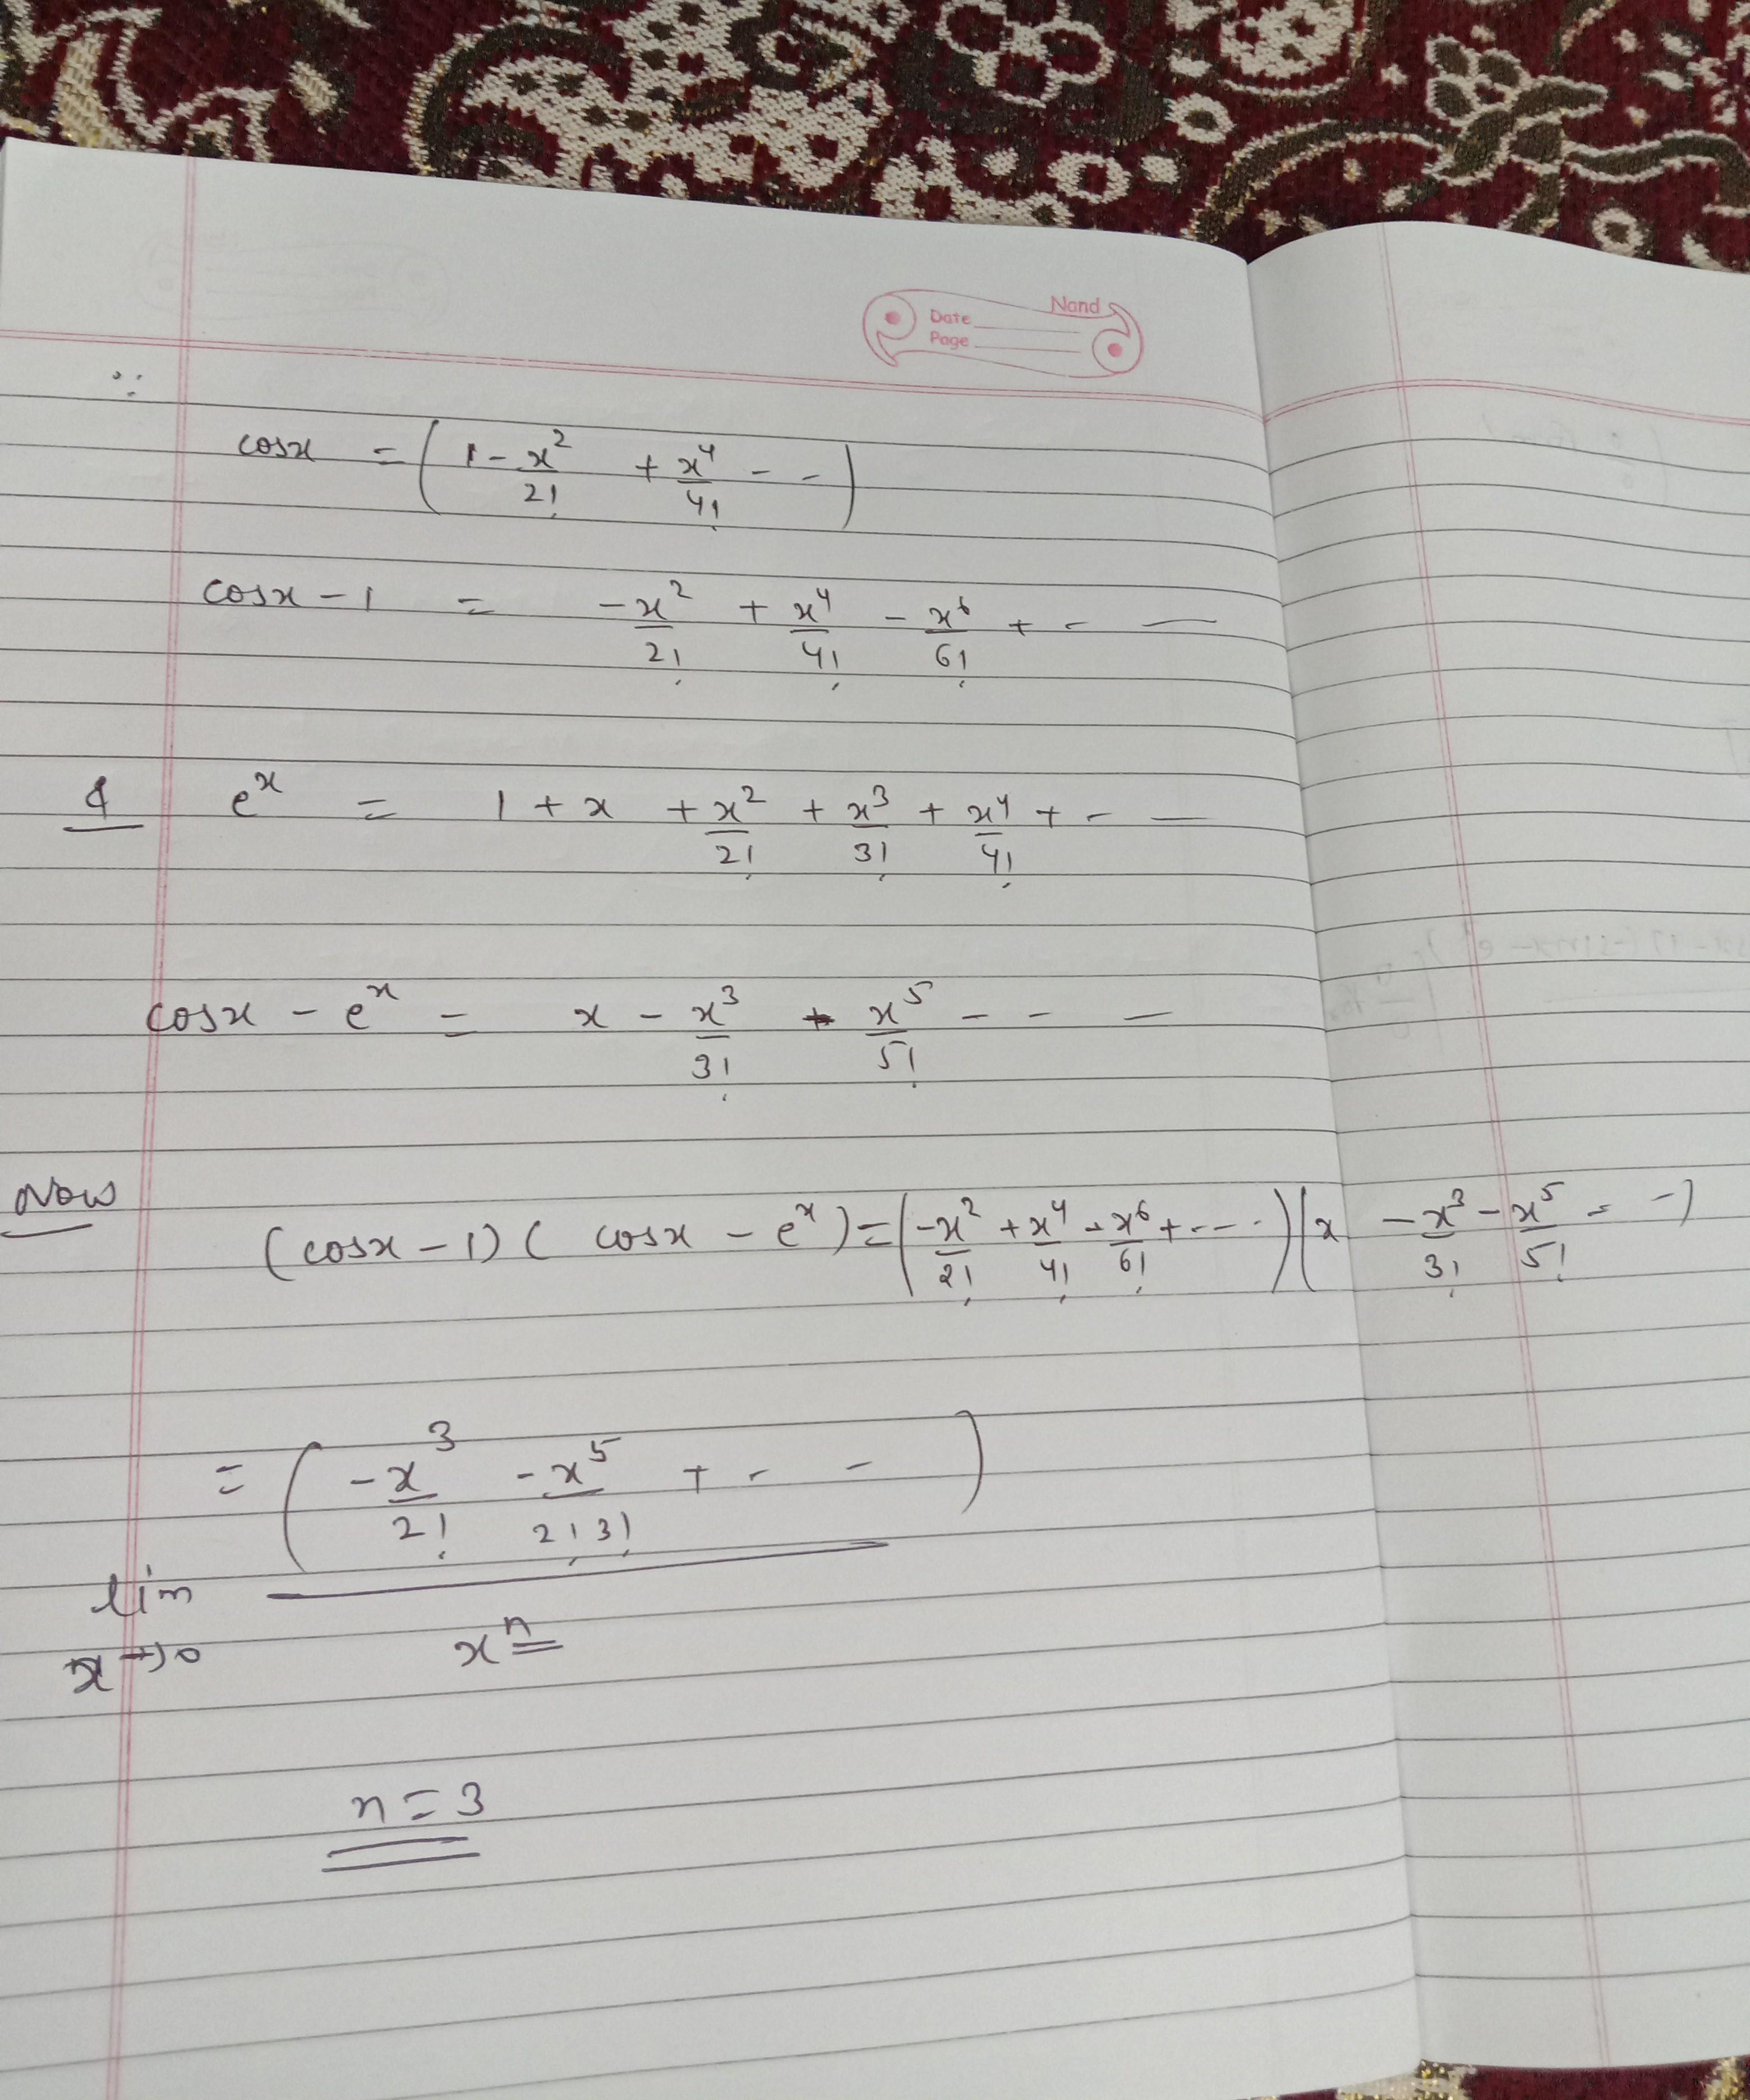 Nand
Date
Page
∵
cosx = (1 - x²/2! + x⁴/4! - -)
cosx - 1 = -x²/2! + x⁴/4! - x⁶/6! + - —
& eˣ = 1 + x + x²/2! + x³/3! + x⁴/4! + - —
cosx - eˣ = x - x³/3! + x⁵/5! - - —
Now
(cosx - 1)(cosx - eˣ) = (-x²/2! + x⁴/4! - x⁶/6! + ----)(x - x³/3! - x⁵/5! - -)
= (-x³/2! - x⁵/2!3! + - -)
lim x→0
xⁿ
n = 3